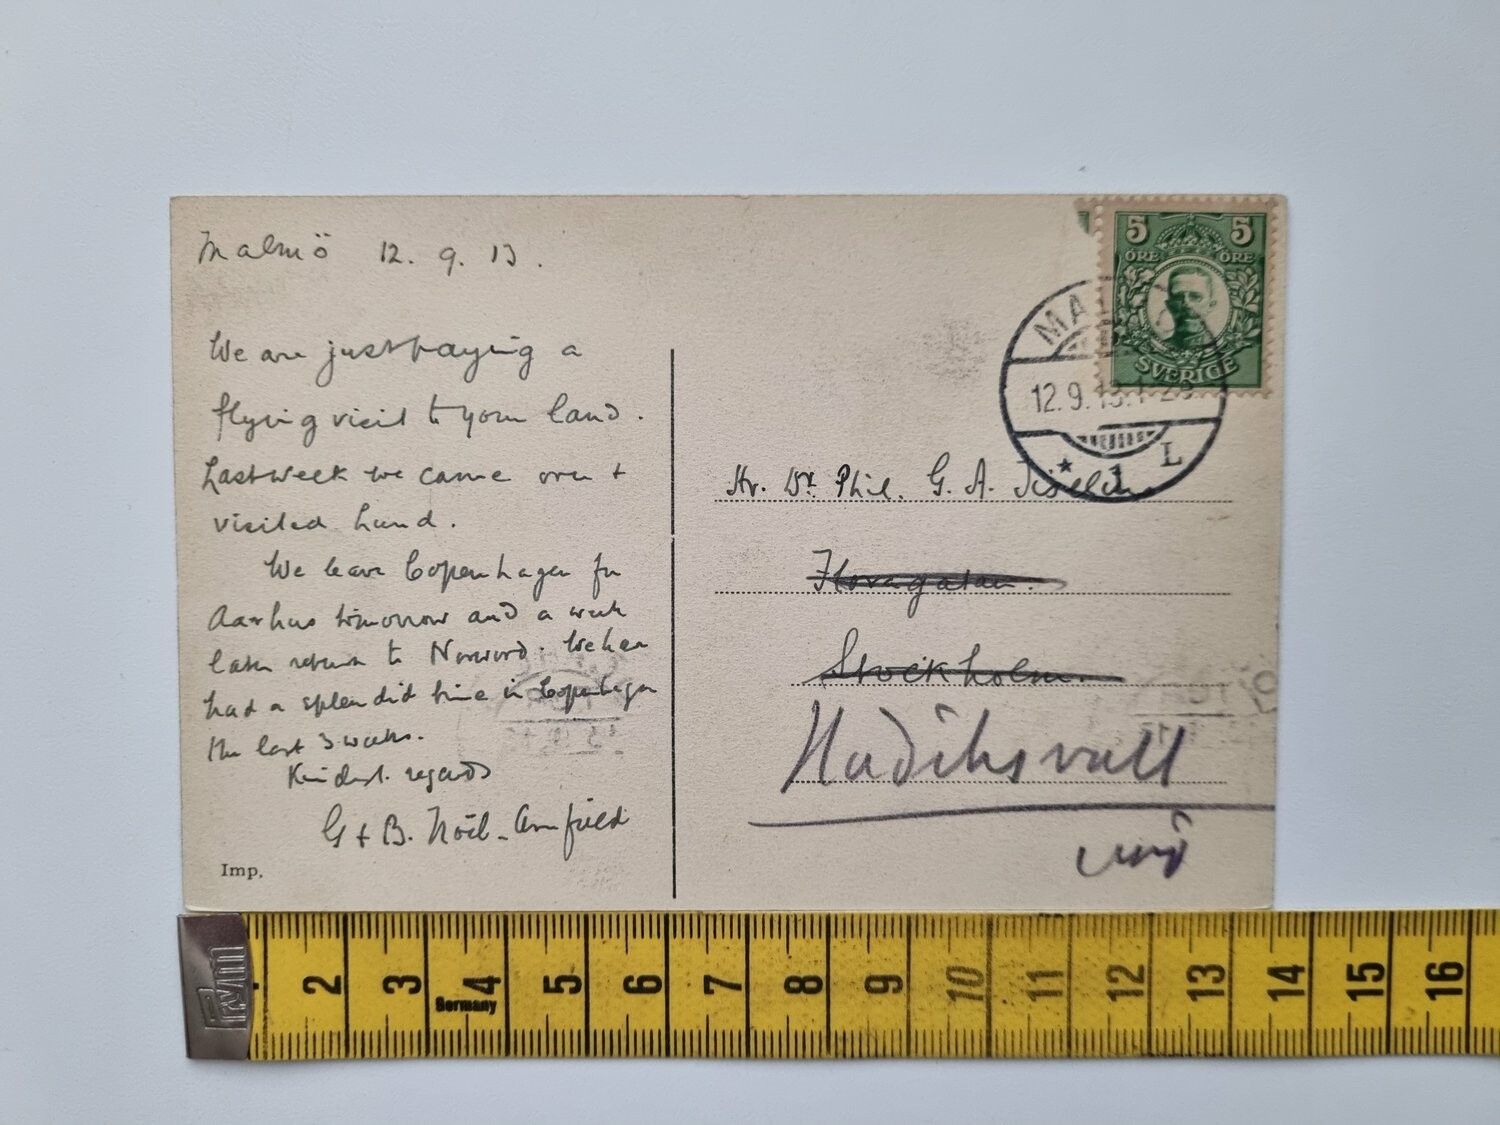 Malmö 12.9.13.
We are just paying a
flying visit to your land.
Last week we came over +
visited Lund.
We leave Copenhagen for
Aarhus tomorrow and a week
later return to Norwood. We have
had a splendid time in Copenhagen
the last 3 weeks.
Kindest regards
G + B. Nöel-Armfield
Imp.
5 5
ÖRE ÖRE
SVERIGE
MALMÖ
12.9.13.1-2
* 1 L
Hr. Dr. Phil. G. A.
Floragatan.
Stockholm.
Hudiksvall
2 3 4 5 6 7 8 9 10 11 12 13 14 15 16
Germany
Prym